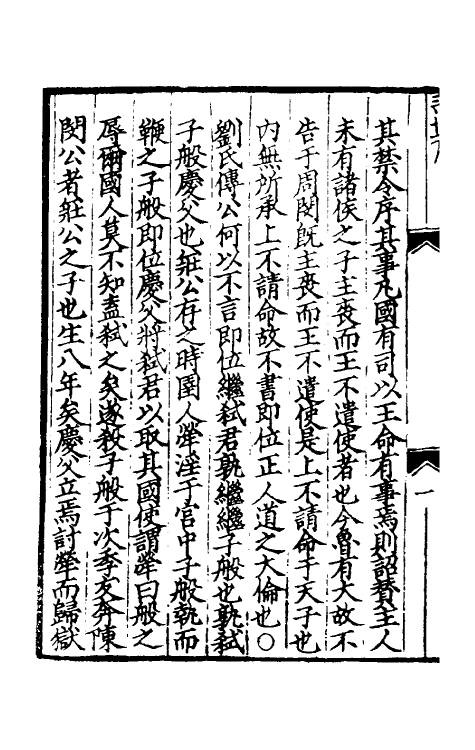 其禁令序其事凡國有司以王命有事焉則詔賛主人
未有諸侯之子主喪而王不遣使者也今魯有大故不
告于周閔既主喪而王不遣使是上不請命于天子也
内無所承上不請命故不書即位正人道之大倫也○
劉氏傳公何以不言即位繼弑君孰繼繼子般也孰弑
子般慶父也莊公存之時圉人犖淫于宫中子般執而
鞭之子般即位慶父將弑君以取其國使謂犖曰般之
辱爾國人莫不知盍弑之矣遂殺子般于次季友奔陳
閔公者莊公之子也生八年矣慶父立焉討犖而歸獄
一